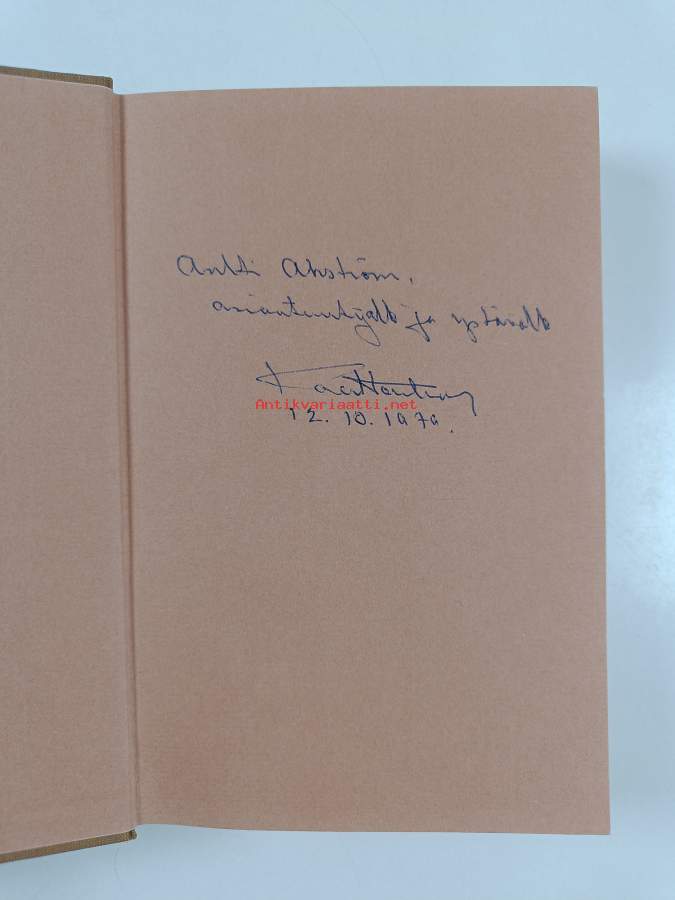 Antti Ahström,
asiantuntijalle ja ystävälle
Antikvariaatti.net
12.10.1979.